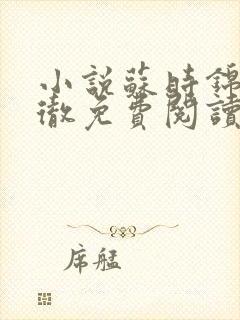 小說蘇時錦
徹免費閱讀
席艋